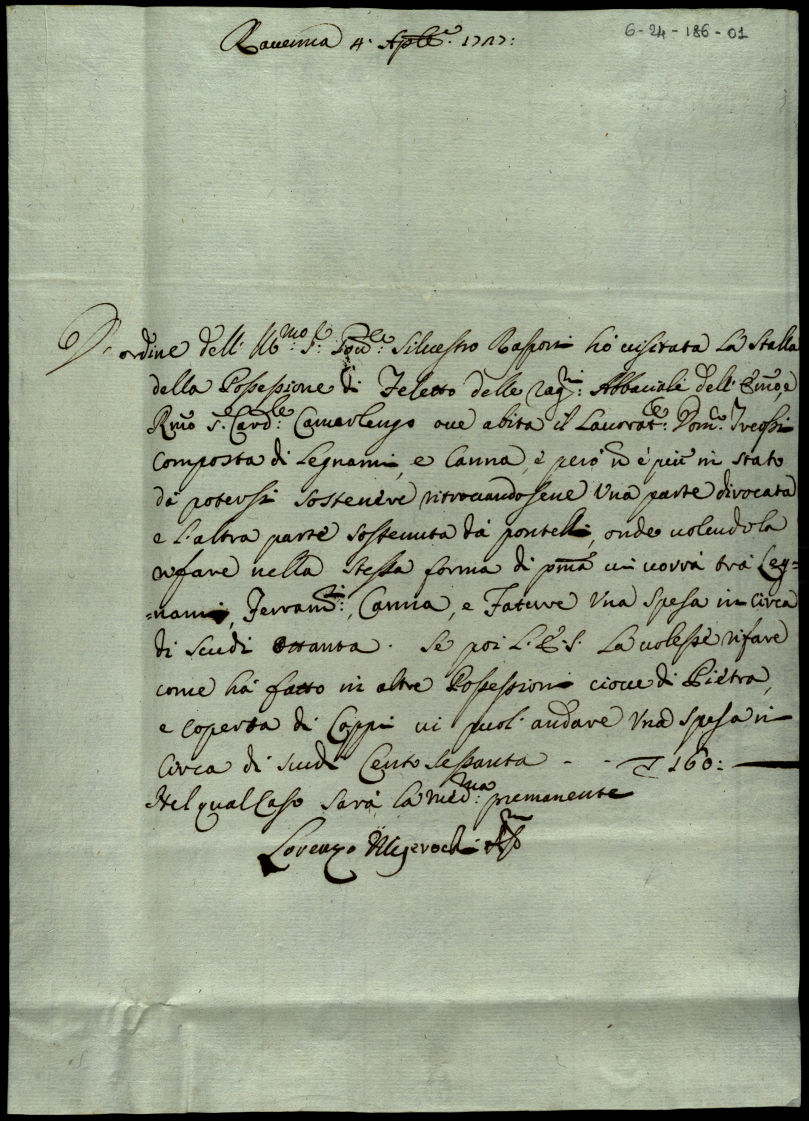 6-24-186-01
Ravenna 4. Aple. 1727:
D'ordine dell' Illmo. Sr. Silvestro Rasponi hò visitata la Stalla
della Possessione di Feletto delle ragni: Abbaciale dell' Emo, e
Rmo Sr. Cardle: Camarlengo ove abita il Lavorate: Domco.
Composta di Legnami, e Canna, e però ñ è più in stato
dà potersi sostenere ritrovandosene Una parte dirocata
e l'altra parte sostenuta dà pontelli, onde volendola
rifare nella stessa forma di pma vi vorrà trà Leg=
=nami, Ferramti:, Canna, e Fatture Una spesa in circa
di scudi Ottanta. Se poi L. E. S. La volesse rifare
come hà fatto in altre Possessioni cioue di Piètra,
e coperta di Coppi vi puol' andare Una spesa in
Circa di scudi Cento sessanta - - 160:
Nel qual Caso sarà la medma: premanente
Lorenzo